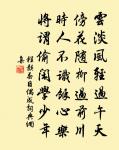 雲淡風輕近午天
傍花隨柳過前川
時人不識余心樂
將謂偷閒學少年
程顥春日偶成詞典網
集